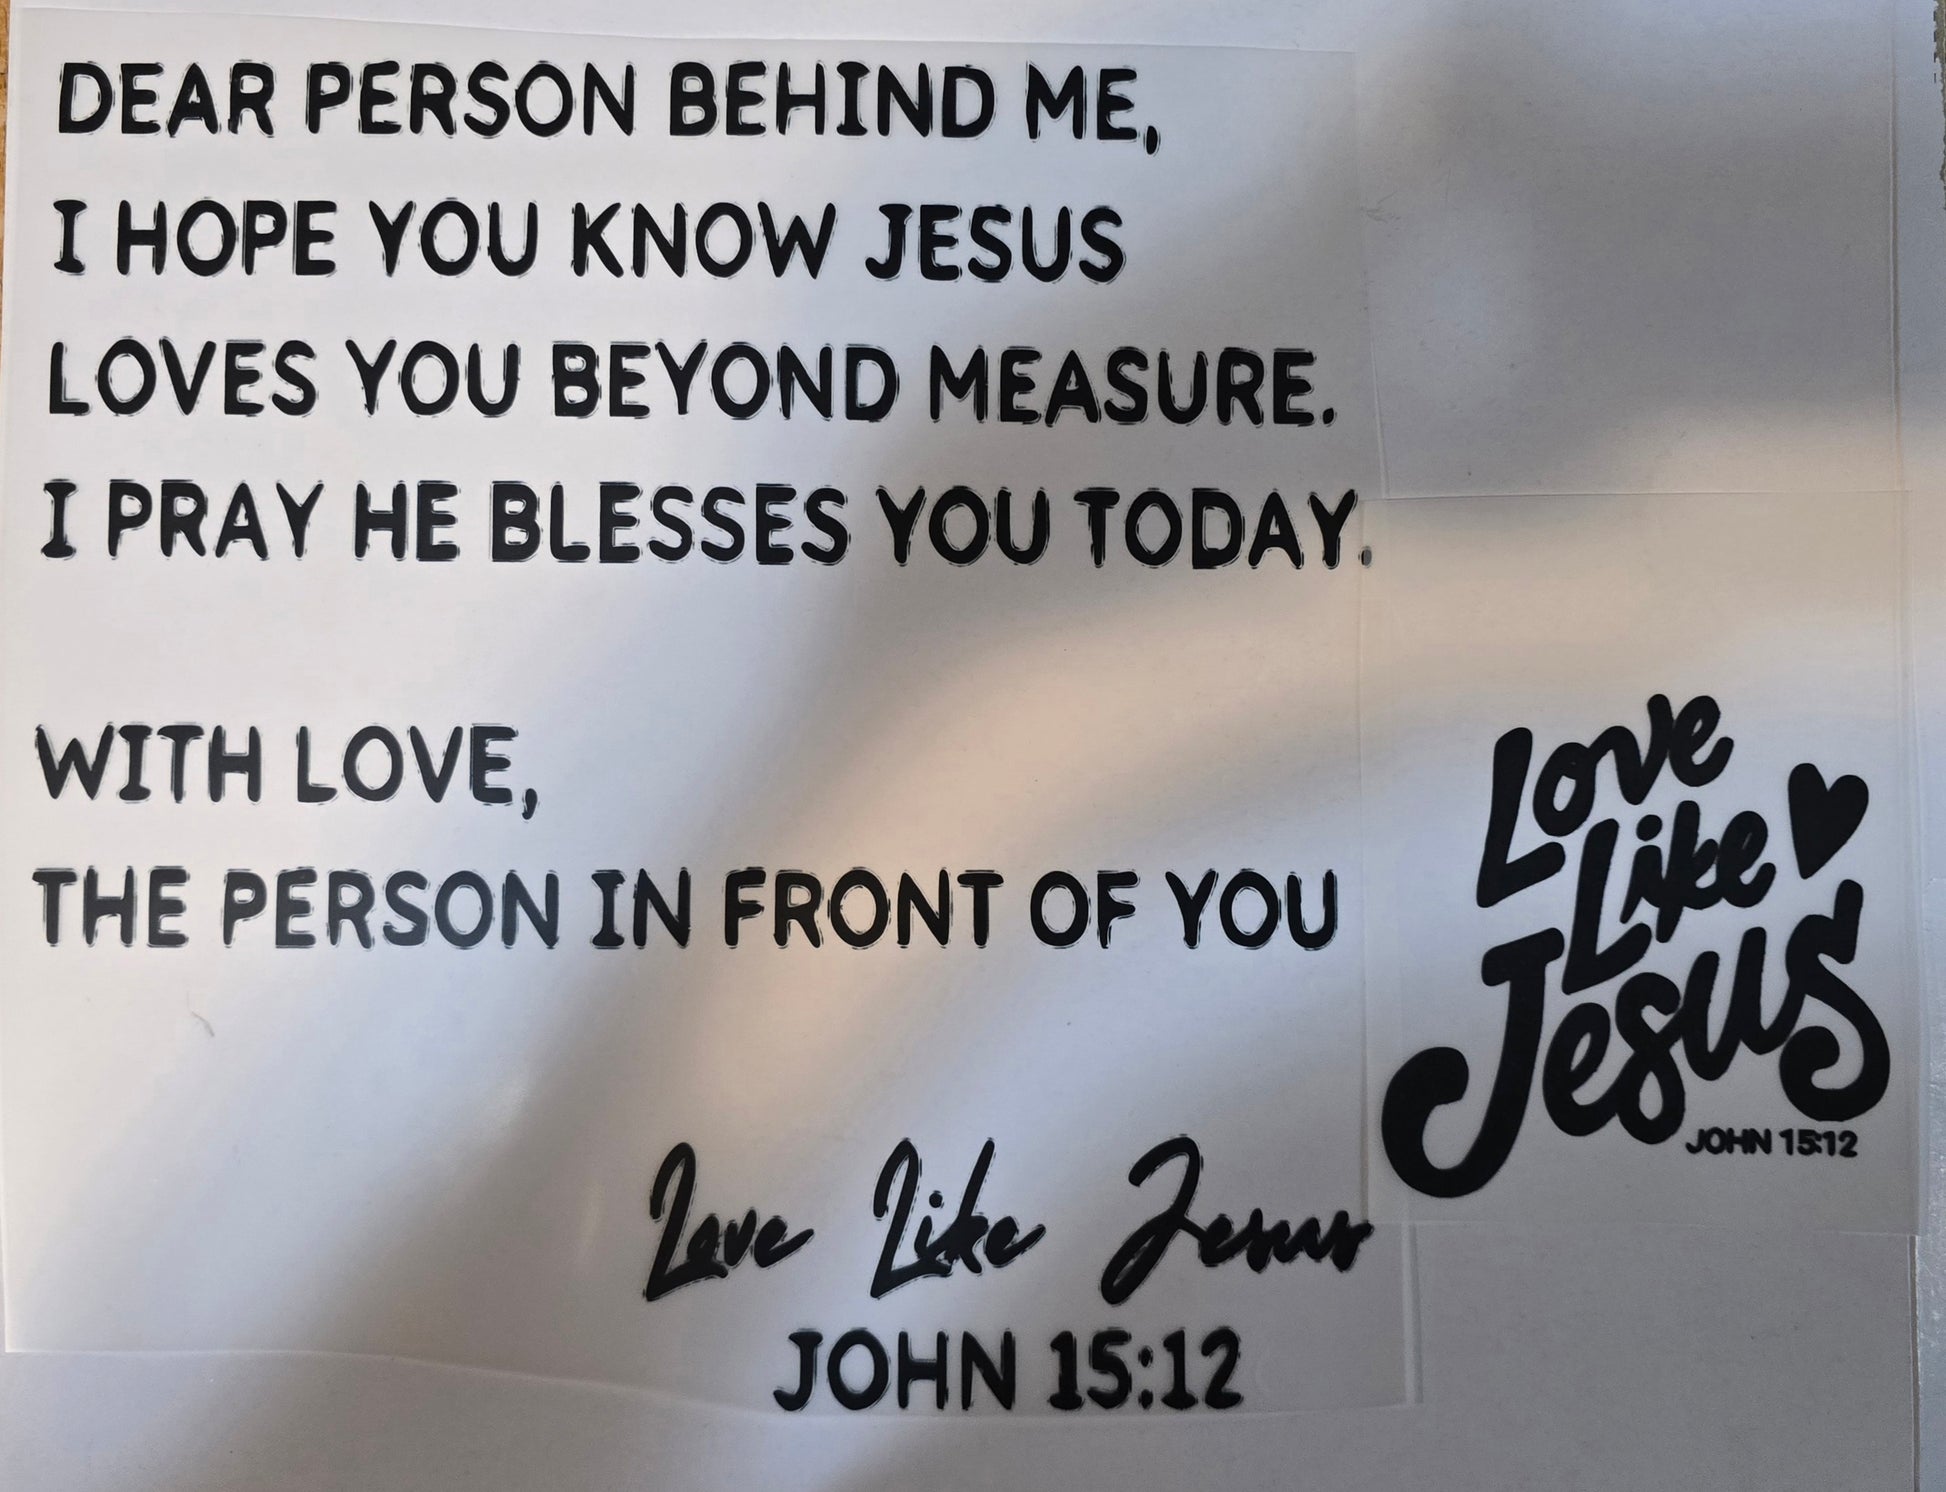 DEAR PERSON BEHIND ME,
I HOPE YOU KNOW JESUS
LOVES YOU BEYOND MEASURE.
I PRAY HE BLESSES YOU TODAY.
WITH LOVE,
THE PERSON IN FRONT OF YOU
Love Like Jesus
JOHN 15:12
Love
Like
Jesus
JOHN 15:12